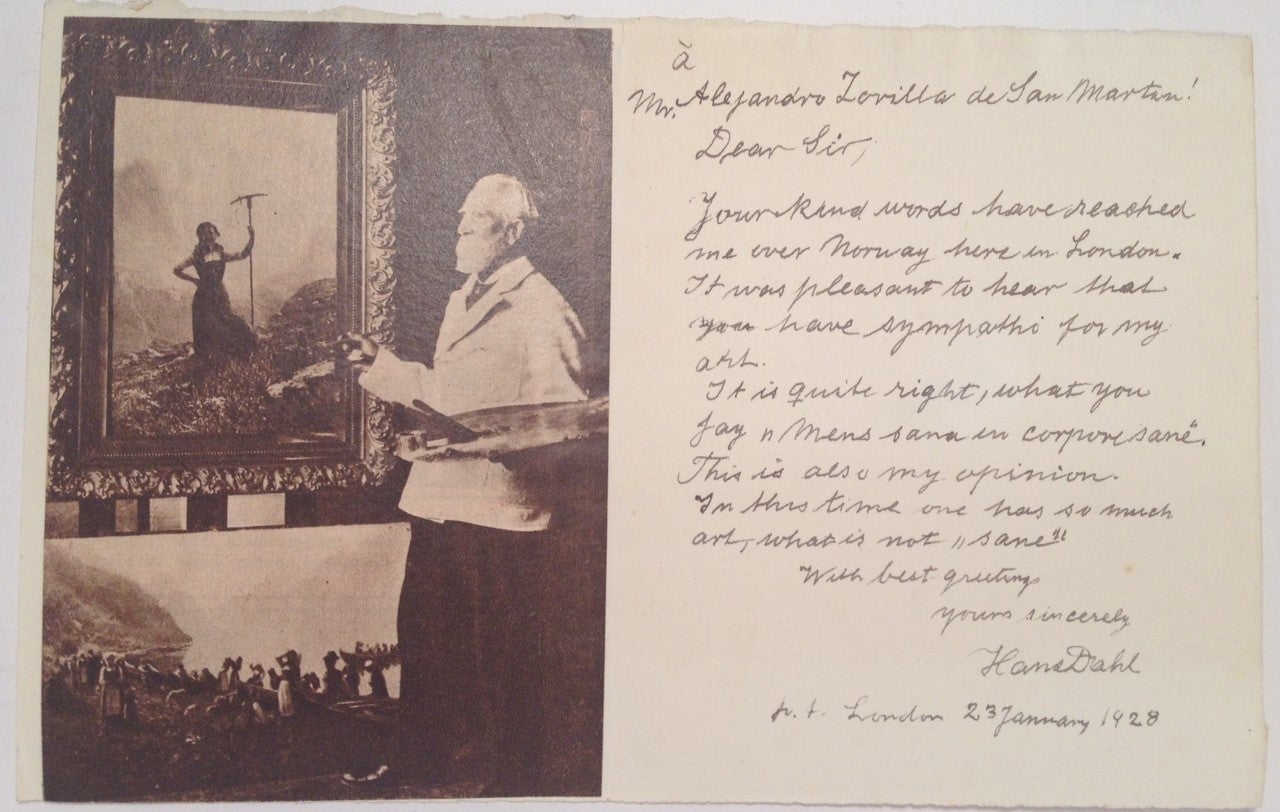 à
Mr. Alejandro Zorilla de San Martin!
Dear Sir,
Your kind words have reached
me over Norway here in London.
It was pleasant to hear that
you have sympathi for my
art.
It is quite right, what you
say „Mens sana in corpore sane".
This is also my opinion.
In this time one has so much
art, what is not „sane"
With best greetings
yours sincerely
Hans Dahl
p.t. London 23 January 1928